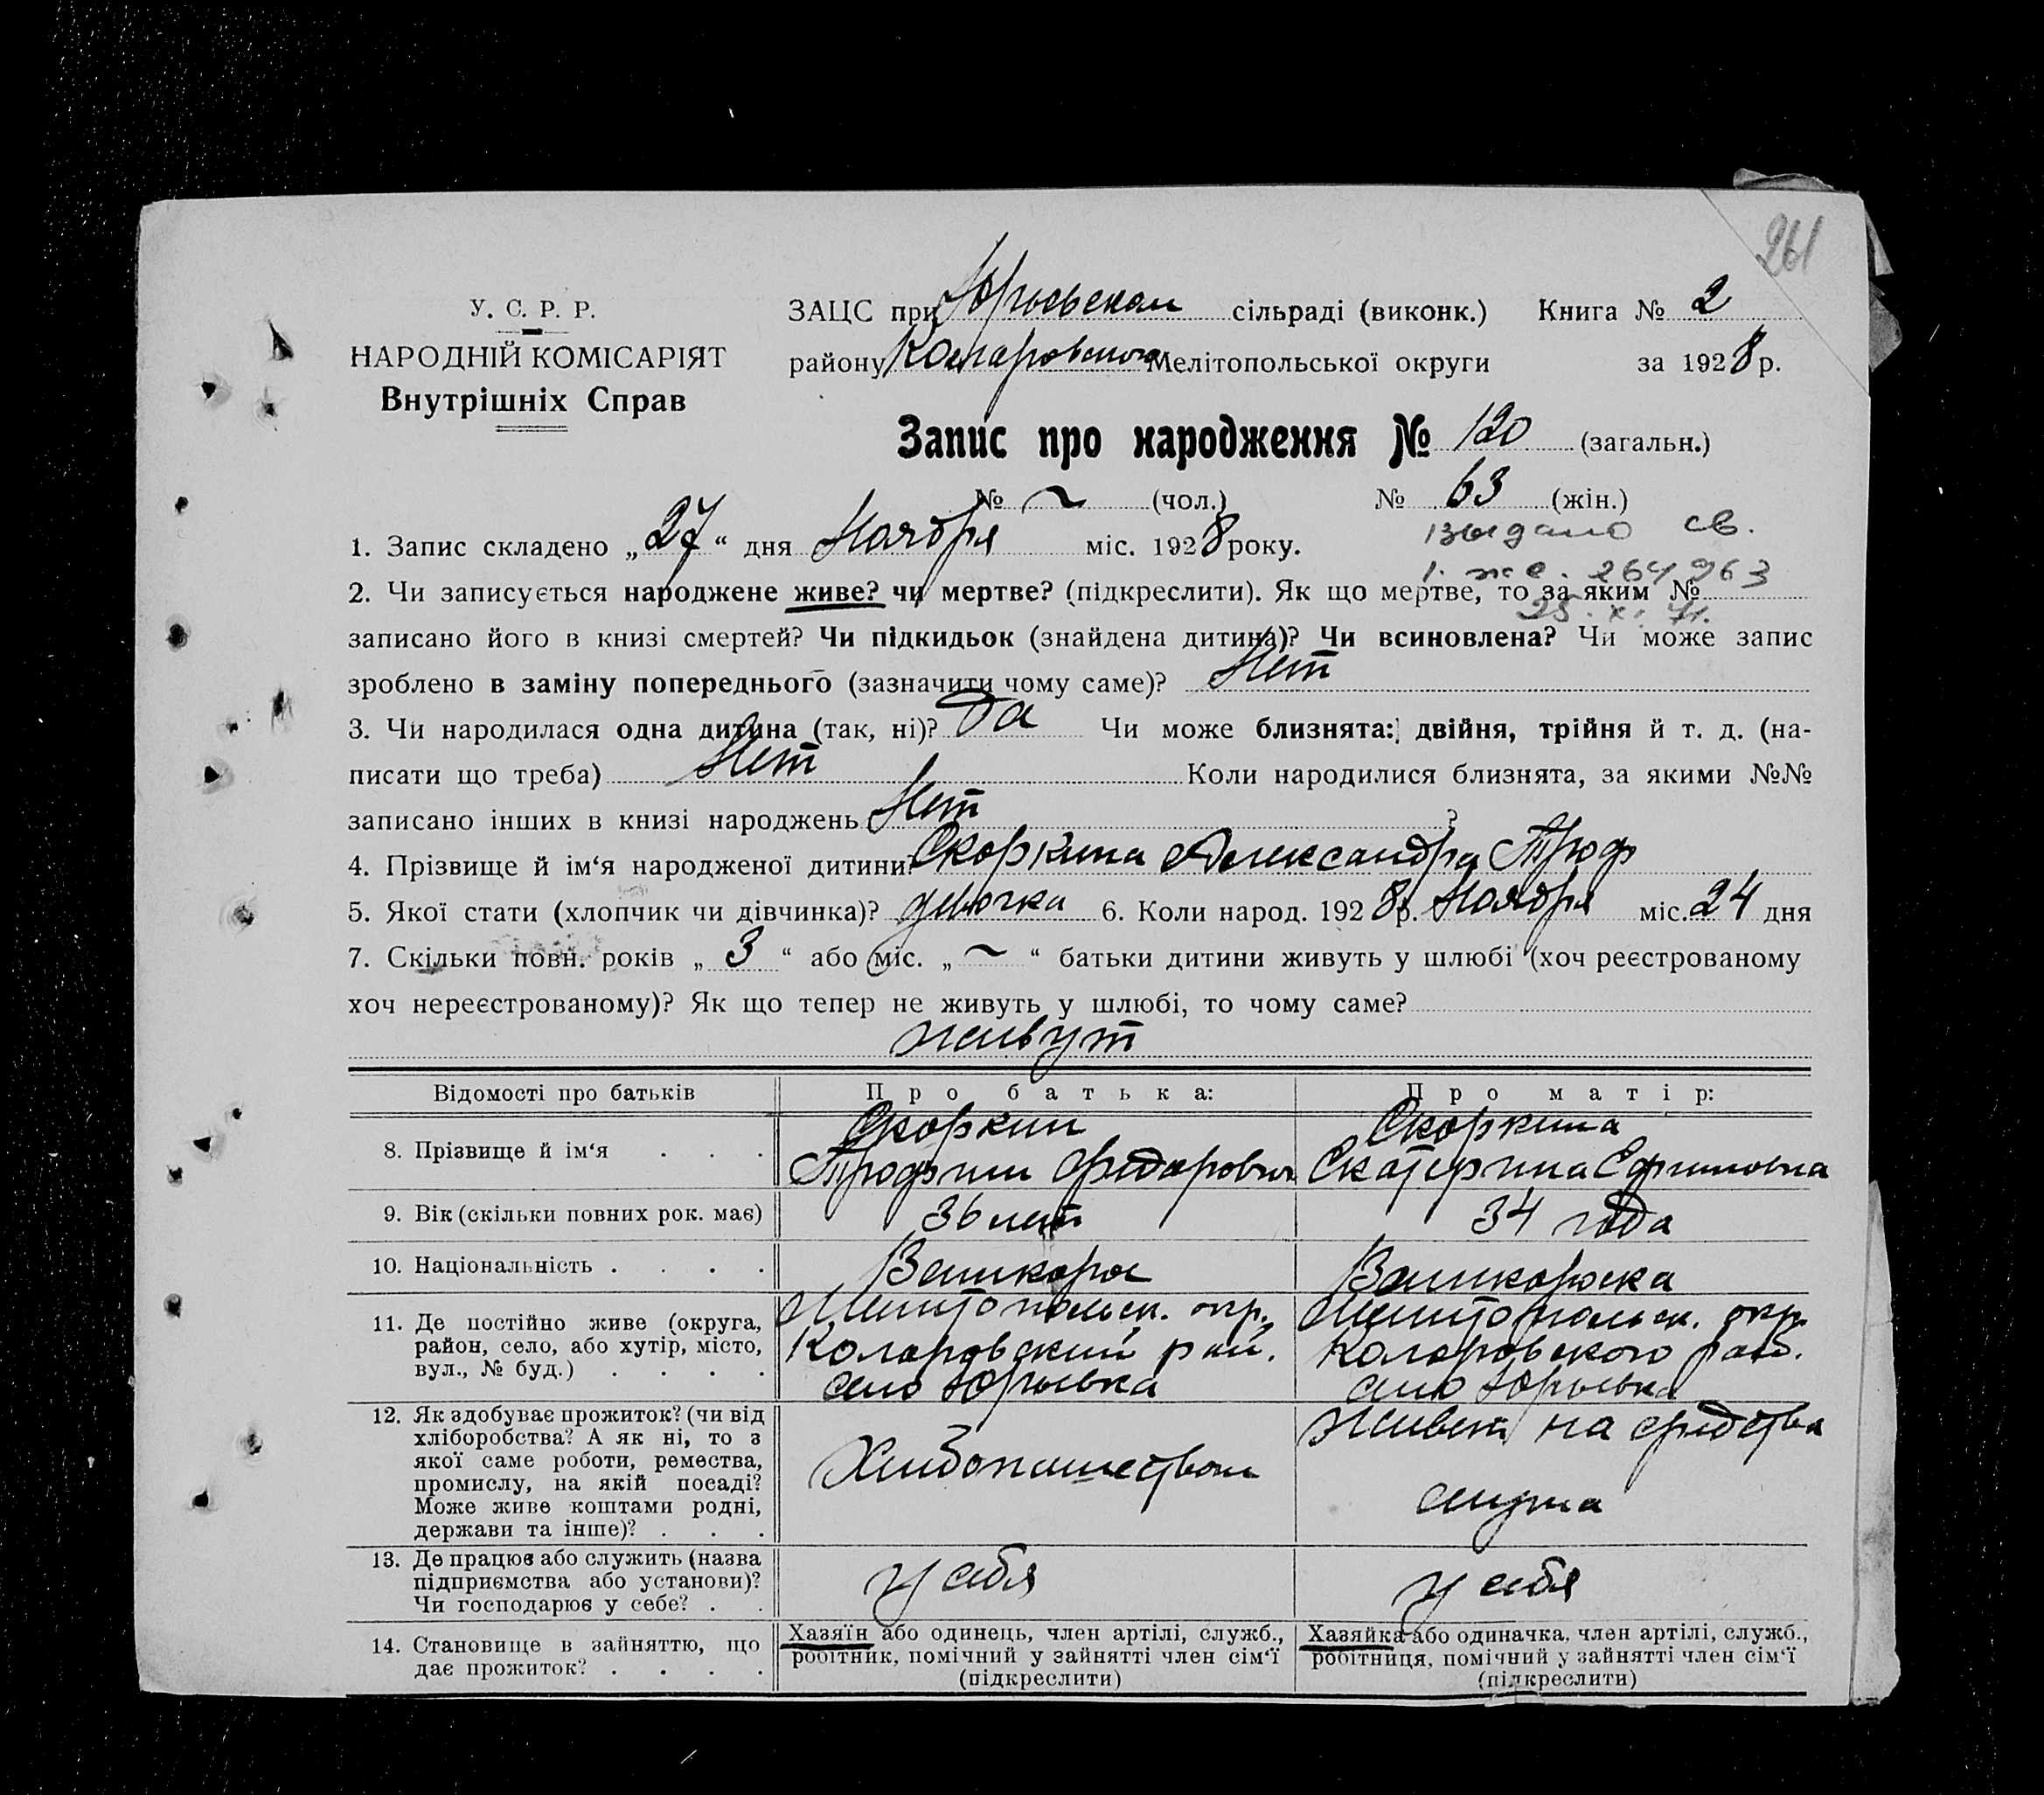 261
У. С. Р. Р.
НАРОДНІЙ КОМІСАРІЯТ
Внутрішніх Справ
ЗАЦС при Юрьевском сільраді (виконк.) Книга № 2
району Коларовского Мелітопольської округи за 1928 р.
Запис про народження № 120 (загальн.)
№ ~ (чол.) № 63 (жін.)
выдано св.
1. Запис складено „27“ дня Ноября міс. 1928 року.
264963
2. Чи записується народжене живе? чи мертве? (підкреслити). Як що мертве, то за яким №
25. XI. 71.
записано його в книзі смертей? Чи підкидьок (знайдена дитина)? Чи всиновлена? Чи може запис
зроблено в заміну попереднього (зазначити чому саме)? Нет
3. Чи народилася одна дитина (так, ні)? Да Чи може близнята: двійня, трійня й т. д. (на-
писати що треба) Нет Коли народилися близнята, за якими №№
записано інших в книзі народжень Нет ?
4. Прізвище й ім‘я народженої дитини? Скоркина Александра Троф
5. Якої стати (хлопчик чи дівчинка)? девочка 6. Коли народ. 1928 р. Ноября міс. 24 дня
7. Скільки повн. років „3“ або міс. „~“ батьки дитини живуть у шлюбі (хоч реєстрованому
хоч нереєстрованому)? Як що тепер не живуть у шлюбі, то чому саме?
живут
Відомості про батьків Про батька: Про матір:
8. Прізвище й ім‘я . . . Скоркин Трофим Федорович Скоркина Екатерина Ефимовна
9. Вік (скільки повних рок. має) 36 лет 34 года
10. Національність . . . . Великорос Великороска
11. Де постійно живе (округа,
район, село, або хутір, місто,
вул., № буд.) . . . .
Мелитопольск. окр.
Коларовский рай.
село Юрьевка
Мелитопольск. окр.
Коларовского рай.
село Юрьевка
12. Як здобуває прожиток? (чи від
хліборобства? А як ні, то з
якої саме роботи, ремества,
промислу, на якій посаді?
Може живе коштами родні,
держави та інше)? . . .
Хлебопашеством
на средства
мужа
13. Де працює або служить (назва
підприємства або установи)?
Чи господарює у себе? . .
у себя
у себя
14. Становище в зайняттю, що
дає прожиток? . . . .
Хазяїн або одинець, член артілі, служб.,
робітник, помічний у зайнятті член сім‘ї
(підкреслити)
Хазяйка або одиначка, член артілі, служб.,
робітниця, помічний у зайнятті член сім‘ї
(підкреслити)